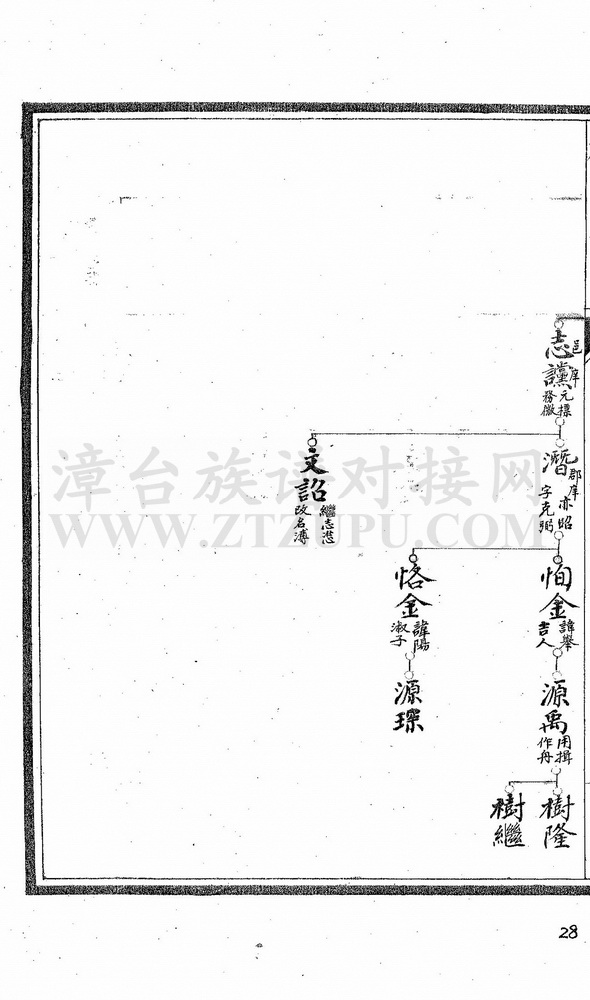 志讜
邑庠
元標
務徽
潛
郡庠
亦昭
字克弼
文詔
繼志㴋
改名溥
恂金
諱舉
吉人
恪金
諱陽
淑子
源禹
用揖
作舟
源琛
樹隆
樹繼
漳台族谱对接网
WWW.ZTZUPU.COM
28